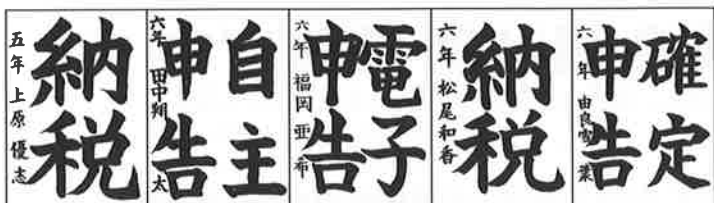 確定
申告
六年 由良雪葉
納税
六年 松尾和香
電子
申告
六年 福岡亜希
自主
申告
六年 田中翔太
納税
五年 上原優志